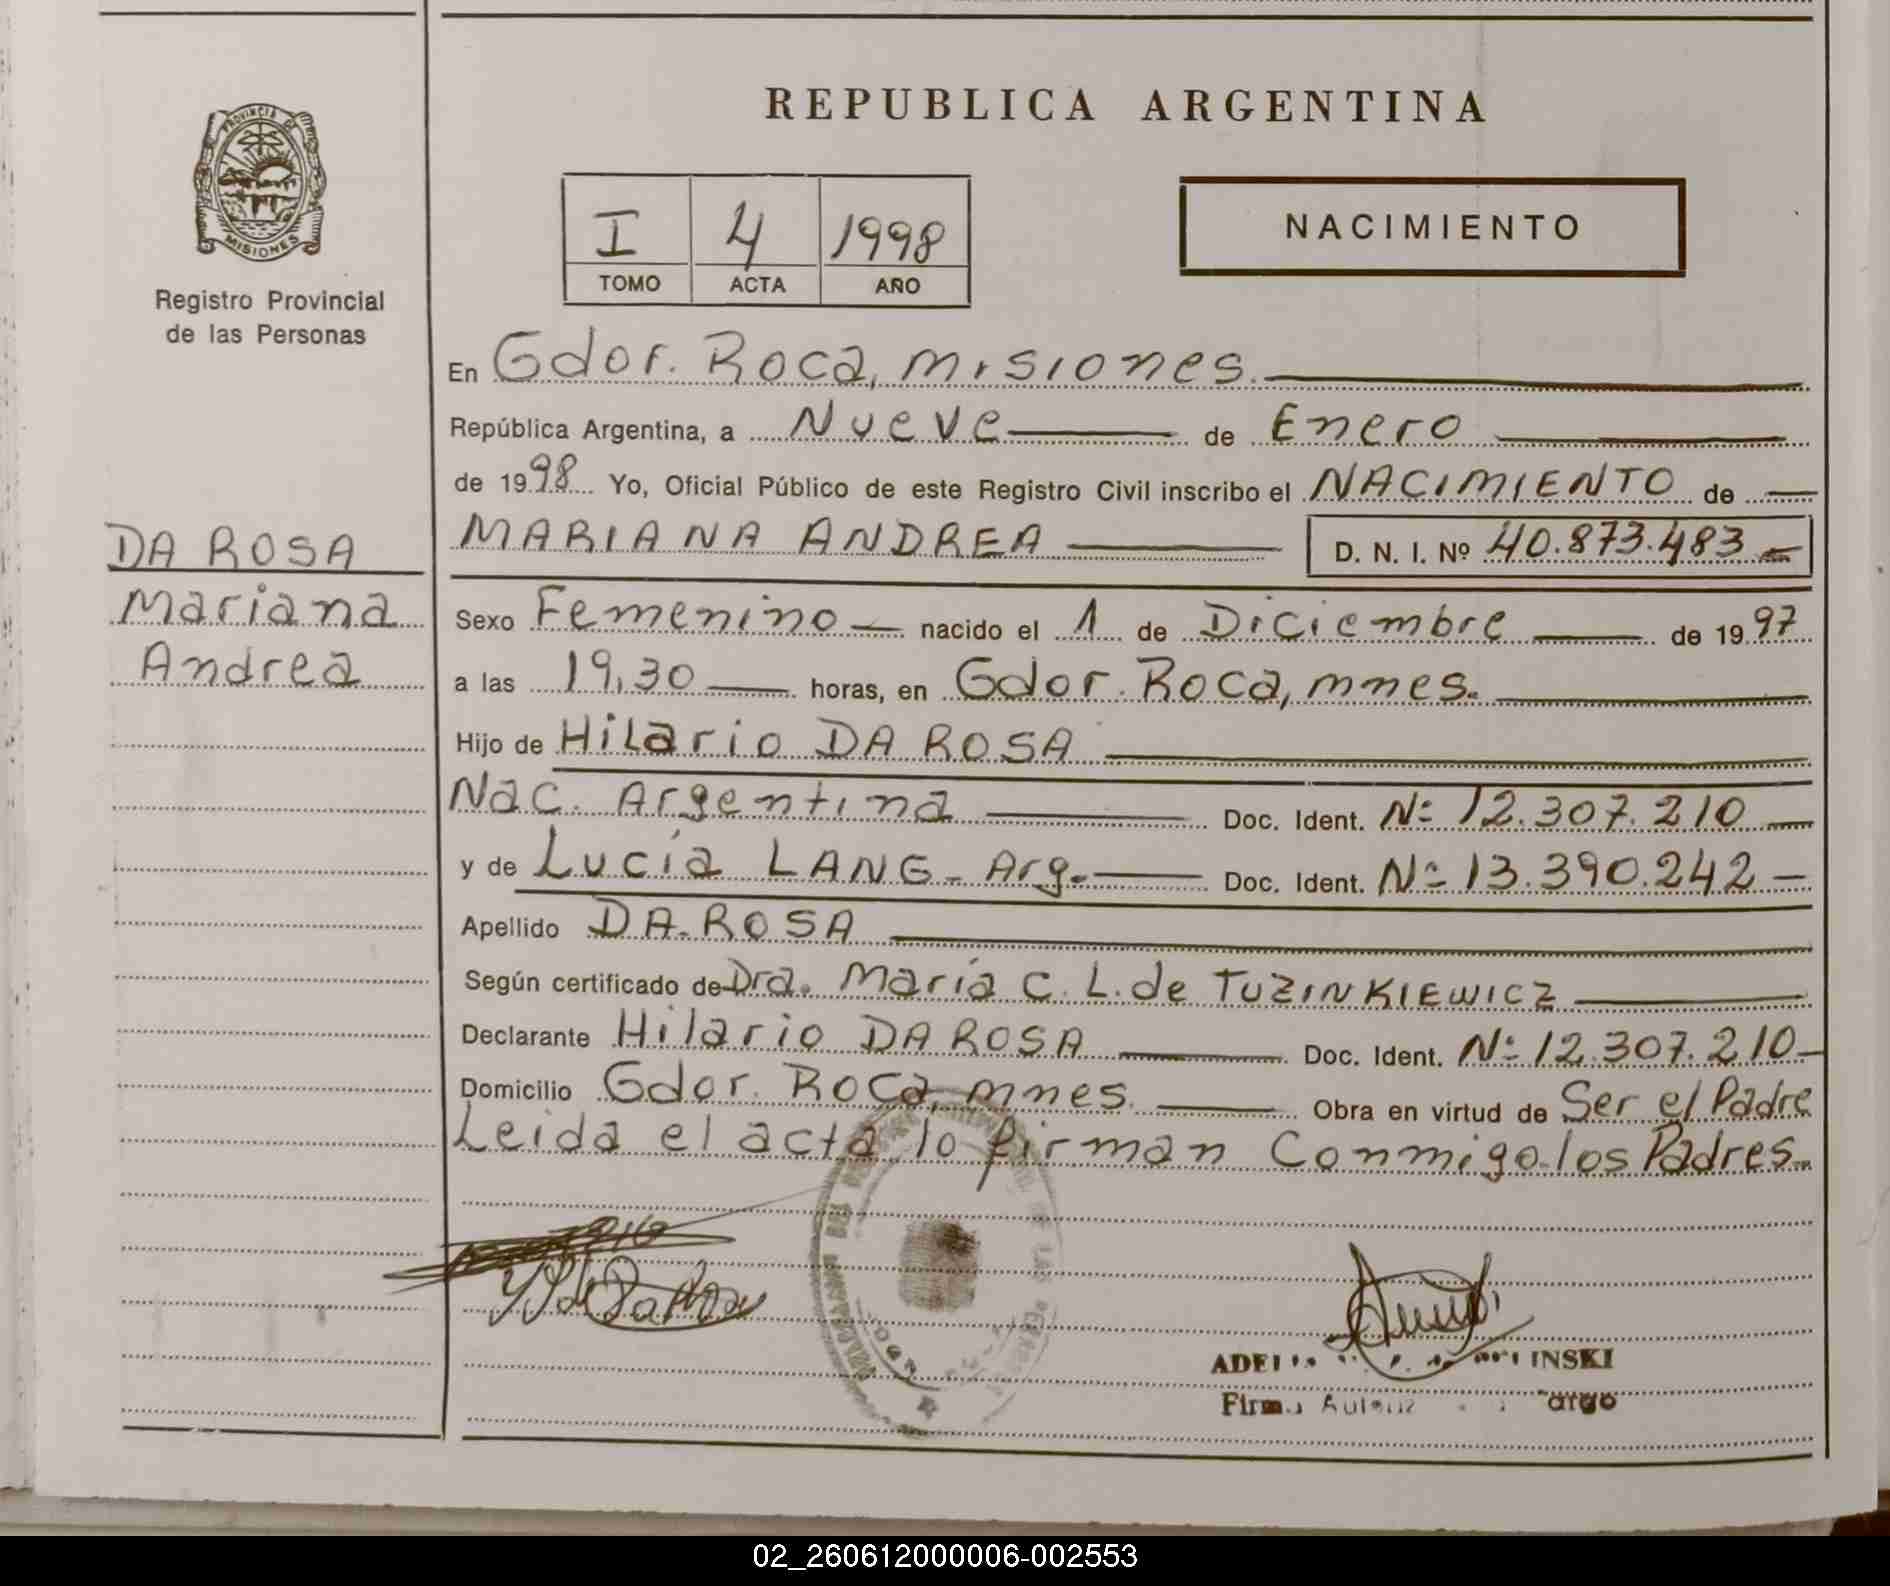 REPUBLICA ARGENTINA
PROVINCIA DE
MISIONES
Registro Provincial
de las Personas
I 4 1998
TOMO ACTA AÑO
NACIMIENTO
En Gdor. Roca, Misiones.
República Argentina, a Nueve de Enero
de 1998 Yo, Oficial Público de este Registro Civil inscribo el NACIMIENTO de
MARIANA ANDREA D. N. I. Nº 40.873.483
DA ROSA
Mariana
Andrea
Sexo Femenino nacido el 1 de Diciembre de 1997
a las 19,30 horas, en Gdor. Roca, mnes.
Hijo de Hilario DA ROSA
Nac. Argentina Doc. Ident. Nº 12.307.210
y de Lucía LANG - Arg. Doc. Ident. Nº 13.390.242
Apellido DA ROSA
Según certificado de Dra. María C. L. de TUZINKIEWICZ
Declarante Hilario DA ROSA Doc. Ident. Nº 12.307.210
Domicilio Gdor. Roca, mnes. Obra en virtud de Ser el Padre
Leida el acta lo firman Conmigo los Padres
INSKI
02_260612000006-002553